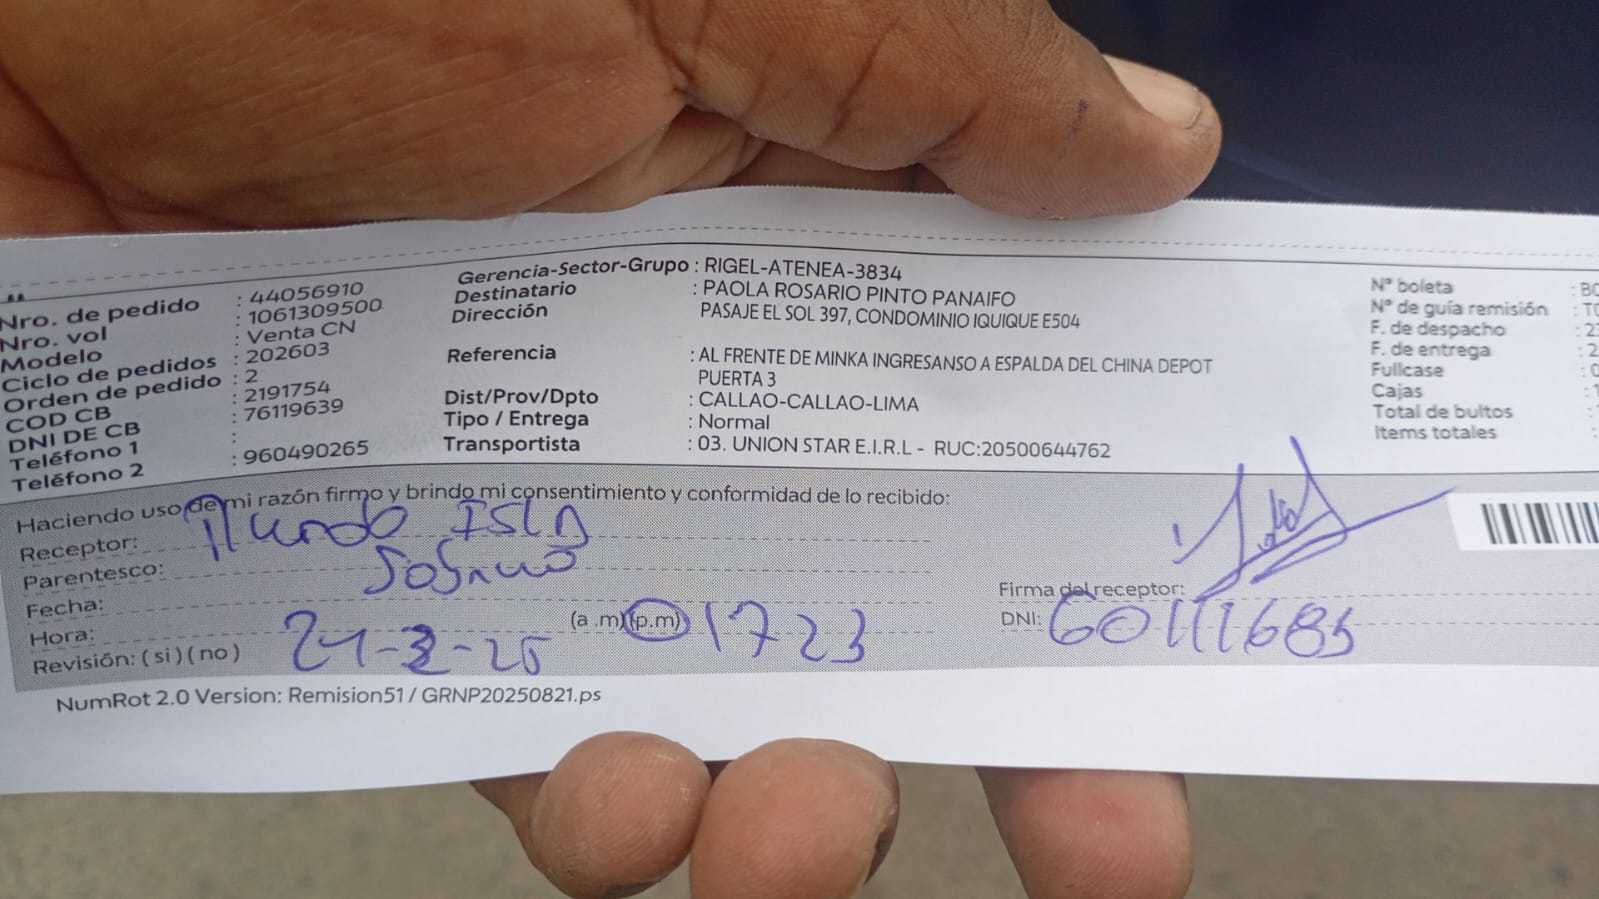 Nro. de pedido : 44056910
Nro. vol : 1061309500
Modelo : Venta CN
Ciclo de pedidos : 202603
Orden de pedido : 2
COD CB : 2191754
DNI DE CB : 76119639
Teléfono 1 :
Teléfono 2 : 960490265
Gerencia-Sector-Grupo : RIGEL-ATENEA-3834
Destinatario : PAOLA ROSARIO PINTO PANAIFO
Dirección PASAJE EL SOL 397, CONDOMINIO IQUIQUE E504
Referencia : AL FRENTE DE MINKA INGRESANSO A ESPALDA DEL CHINA DEPOT
PUERTA 3
Dist/Prov/Dpto : CALLAO-CALLAO-LIMA
Tipo / Entrega : Normal
Transportista : 03. UNION STAR E.I.R.L - RUC:20500644762
Nº boleta : BO
Nº de guía remisión : T0
F. de despacho : 2
F. de entrega : 2
Fullcase : 0
Cajas : 1
Total de bultos :
Items totales :
Haciendo uso de mi razón firmo y brindo mi consentimiento y conformidad de lo recibido:
Receptor: ISLA
Parentesco: Sobrino
Fecha:
Hora: (a .m)(p.m) 1723
Revisión: ( si ) ( no )
Firma del receptor:
DNI: 60111685
NumRot 2.0 Version: Remision51 / GRNP20250821.ps